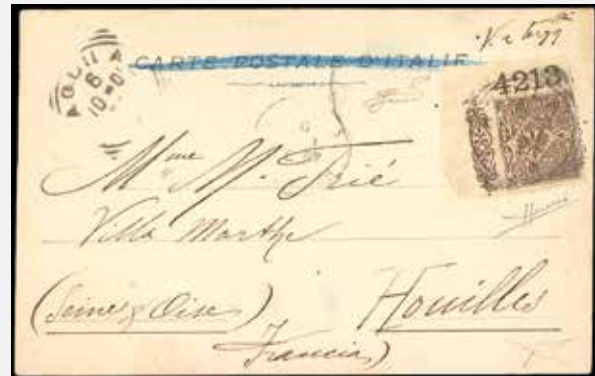 CARTE POSTALE D'ITALIE
4213
Mme M. Trié
Villa Marthe
(Seine & Oise)
Houilles
Francia)